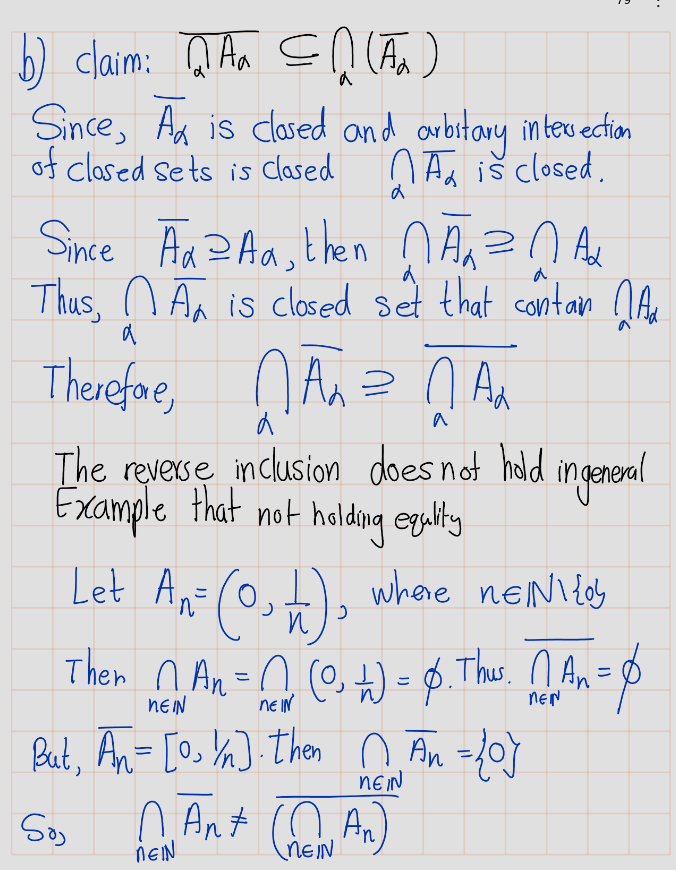 19 :
b) claim: $\overline{\bigcap_{\alpha} A_{\alpha}} \subseteq \bigcap_{\alpha} (\overline{A_{\alpha}})$
Since, $\overline{A_{\alpha}}$ is closed and arbitary intersection
of closed sets is closed $\bigcap_{\alpha} \overline{A_{\alpha}}$ is closed.
Since $\overline{A_{\alpha}} \supseteq A_{\alpha}$, then $\bigcap_{\alpha} \overline{A_{\alpha}} \supseteq \bigcap_{\alpha} A_{\alpha}$
Thus, $\bigcap_{\alpha} \overline{A_{\alpha}}$ is closed set that contain $\bigcap_{\alpha} A_{\alpha}$
Therefore, $\bigcap_{\alpha} \overline{A_{\alpha}} \supseteq \overline{\bigcap_{\alpha} A_{\alpha}}$
The reverse inclusion does not hold in general
Example that not holding equlity
Let $A_n = (0, \frac{1}{n})$, where $n \in \mathbb{N} \setminus \{0\}$
Then $\bigcap_{n \in \mathbb{N}} A_n = \bigcap_{n \in \mathbb{N}} (0, \frac{1}{n}) = \phi$. Thus. $\overline{\bigcap_{n \in \mathbb{N}} A_n} = \phi$
But, $\overline{A_n} = [0, 1/n]$. Then $\bigcap_{n \in \mathbb{N}} \overline{A_n} = \{0\}$
So, $\bigcap_{n \in \mathbb{N}} \overline{A_n} \neq \overline{(\bigcap_{n \in \mathbb{N}} A_n)}$